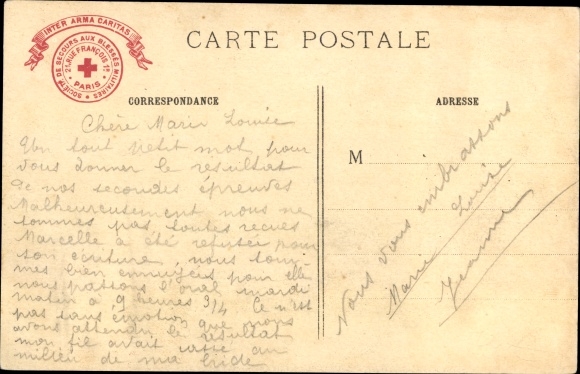 INTER ARMA CARITAS
SOCIÉTÉ DE SECOURS AUX BLESSÉS MILITAIRES
21, RUE FRANÇOIS 1er
PARIS
CARTE POSTALE
CORRESPONDANCE
ADRESSE
M
Chère Marie Louise
Un tout petit mot pour
vous donner le résultat
de nos secondes épreuves
Malheureusement nous ne
sommes pas toutes reçues
Marcelle a été refusée pour
son écriture, nous sommes
bien ennuyées pour elle
nous passons l'oral mardi
matin à 9 heures 3/4 Ce n'est
pas sans émotion que nous
avons attendu le résultat
mon fil avait cassé au
milieu de ma bride
Nous vous embrassons
Marie Louise
Jeanne